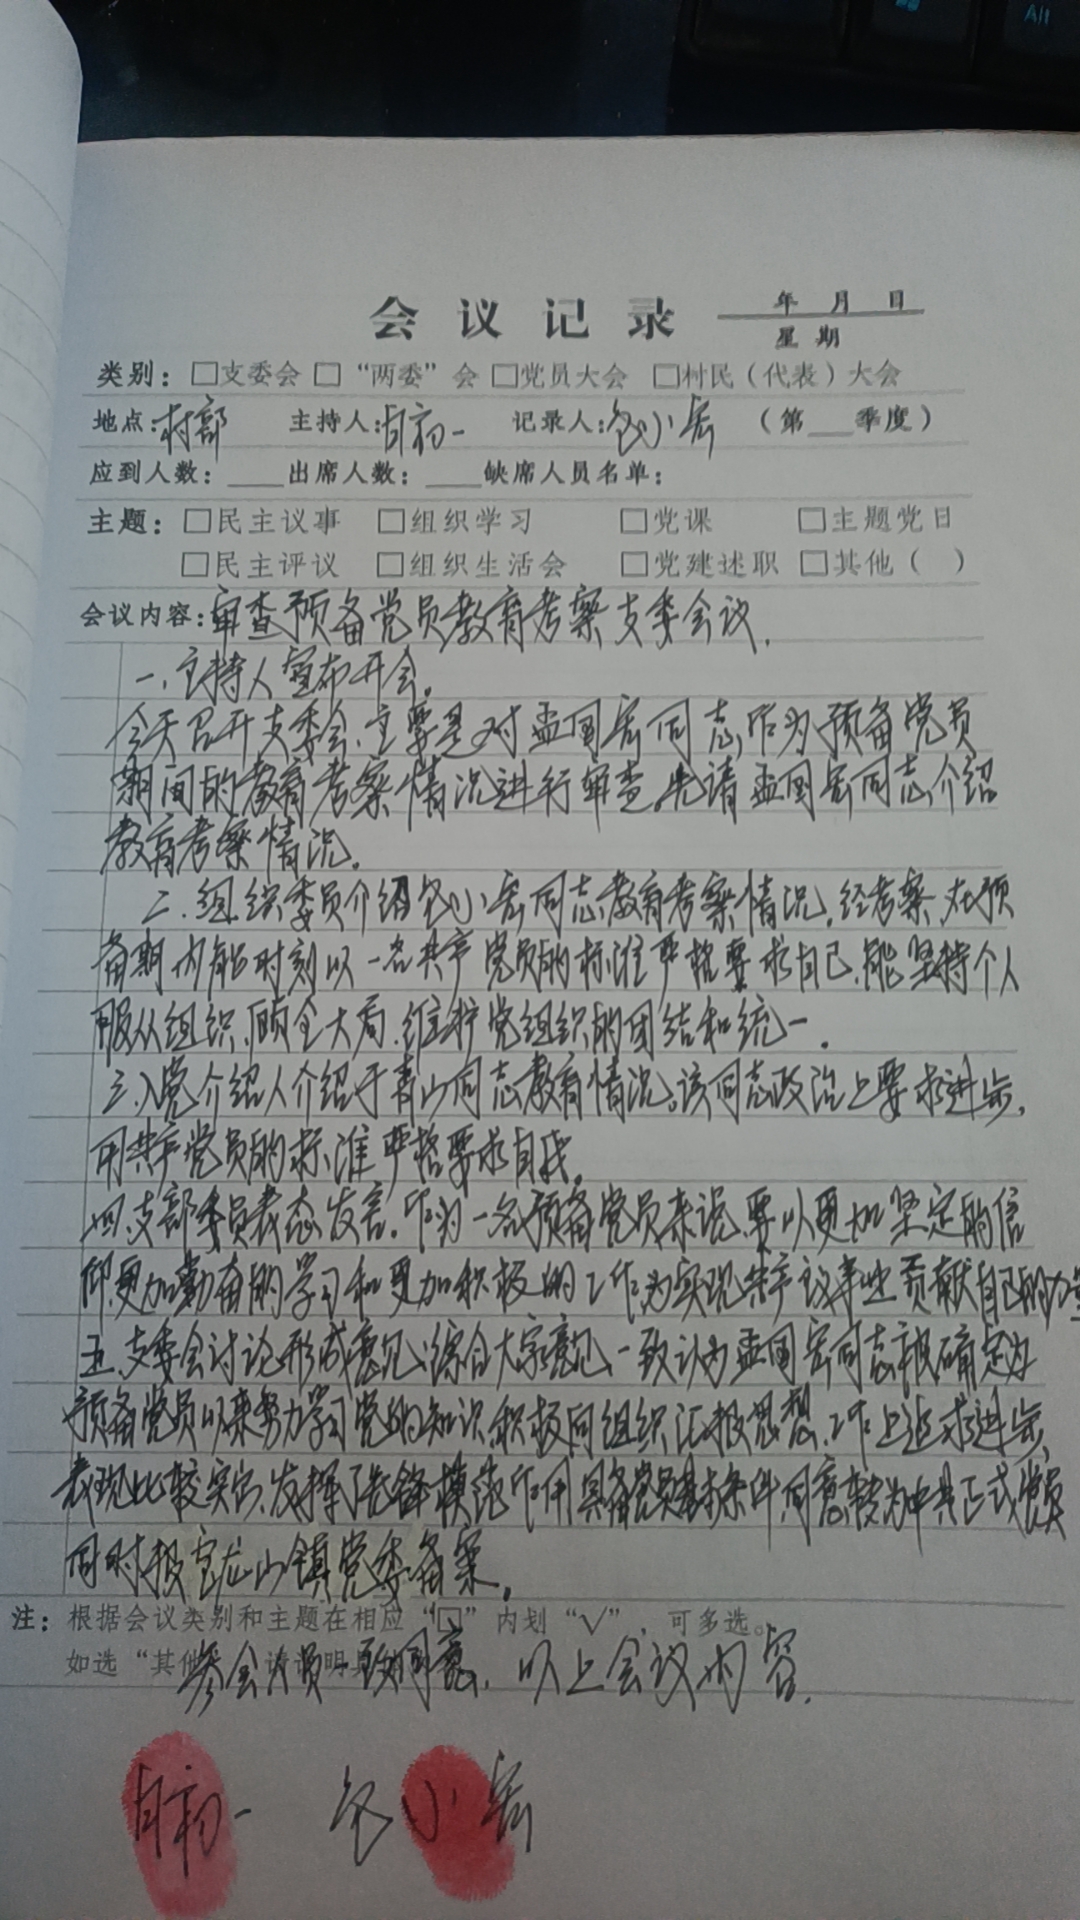 Alt
会议记录 年 月 日
星期
类别：□支委会 □“两委”会 □党员大会 □村民（代表）大会
地点：村部 主持人：白初一 记录人：包小宏 （第 季度）
应到人数： 出席人数： 缺席人员名单：
主题：□民主议事 □组织学习 □党课 □主题党日
□民主评议 □组织生活会 □党建述职 □其他（ ）
会议内容：审查预备党员教育考察支委会议.
一、主持人宣布开会。
今天召开支委会、主要是对孟国宏同志作为预备党员
期间的教育考察情况进行审查.先请孟国宏同志介绍
教育考察情况。
二.组织委员介绍包小宏同志教育考察情况。经考察、在预
备期内能时刻以一名共产党员的标准严格要求自己.能坚持个人
服从组织、顾全大局.维护党组织的团结和统一.
三、入党介绍人介绍于青山同志教育情况。该同志政治上要求进步，
用共产党员的标准严格要求自我。
四、支部委员表态发言.作为一名预备党员来说.要以更加坚定的信
仰.更加勤奋的学习和更加积极的工作.为实现共产议事业贡献自己的力量
五、支委会讨论形成意见.综合大家意见、一致认为孟国宏同志被确定为
预备党员以来努力学习党的知识.积极向组织汇报思想.工作上追求进步，
表现比较突出、发挥了先锋模范作用.具备党员基本条件.同意转为中共正式党员
同时报宝龙山镇党委备案。
注：根据会议类别和主题在相应“□”内划“√”，可多选。
如选“其他 请 明
参会人员一致同意，以上会议内容.
白初一 包小宏